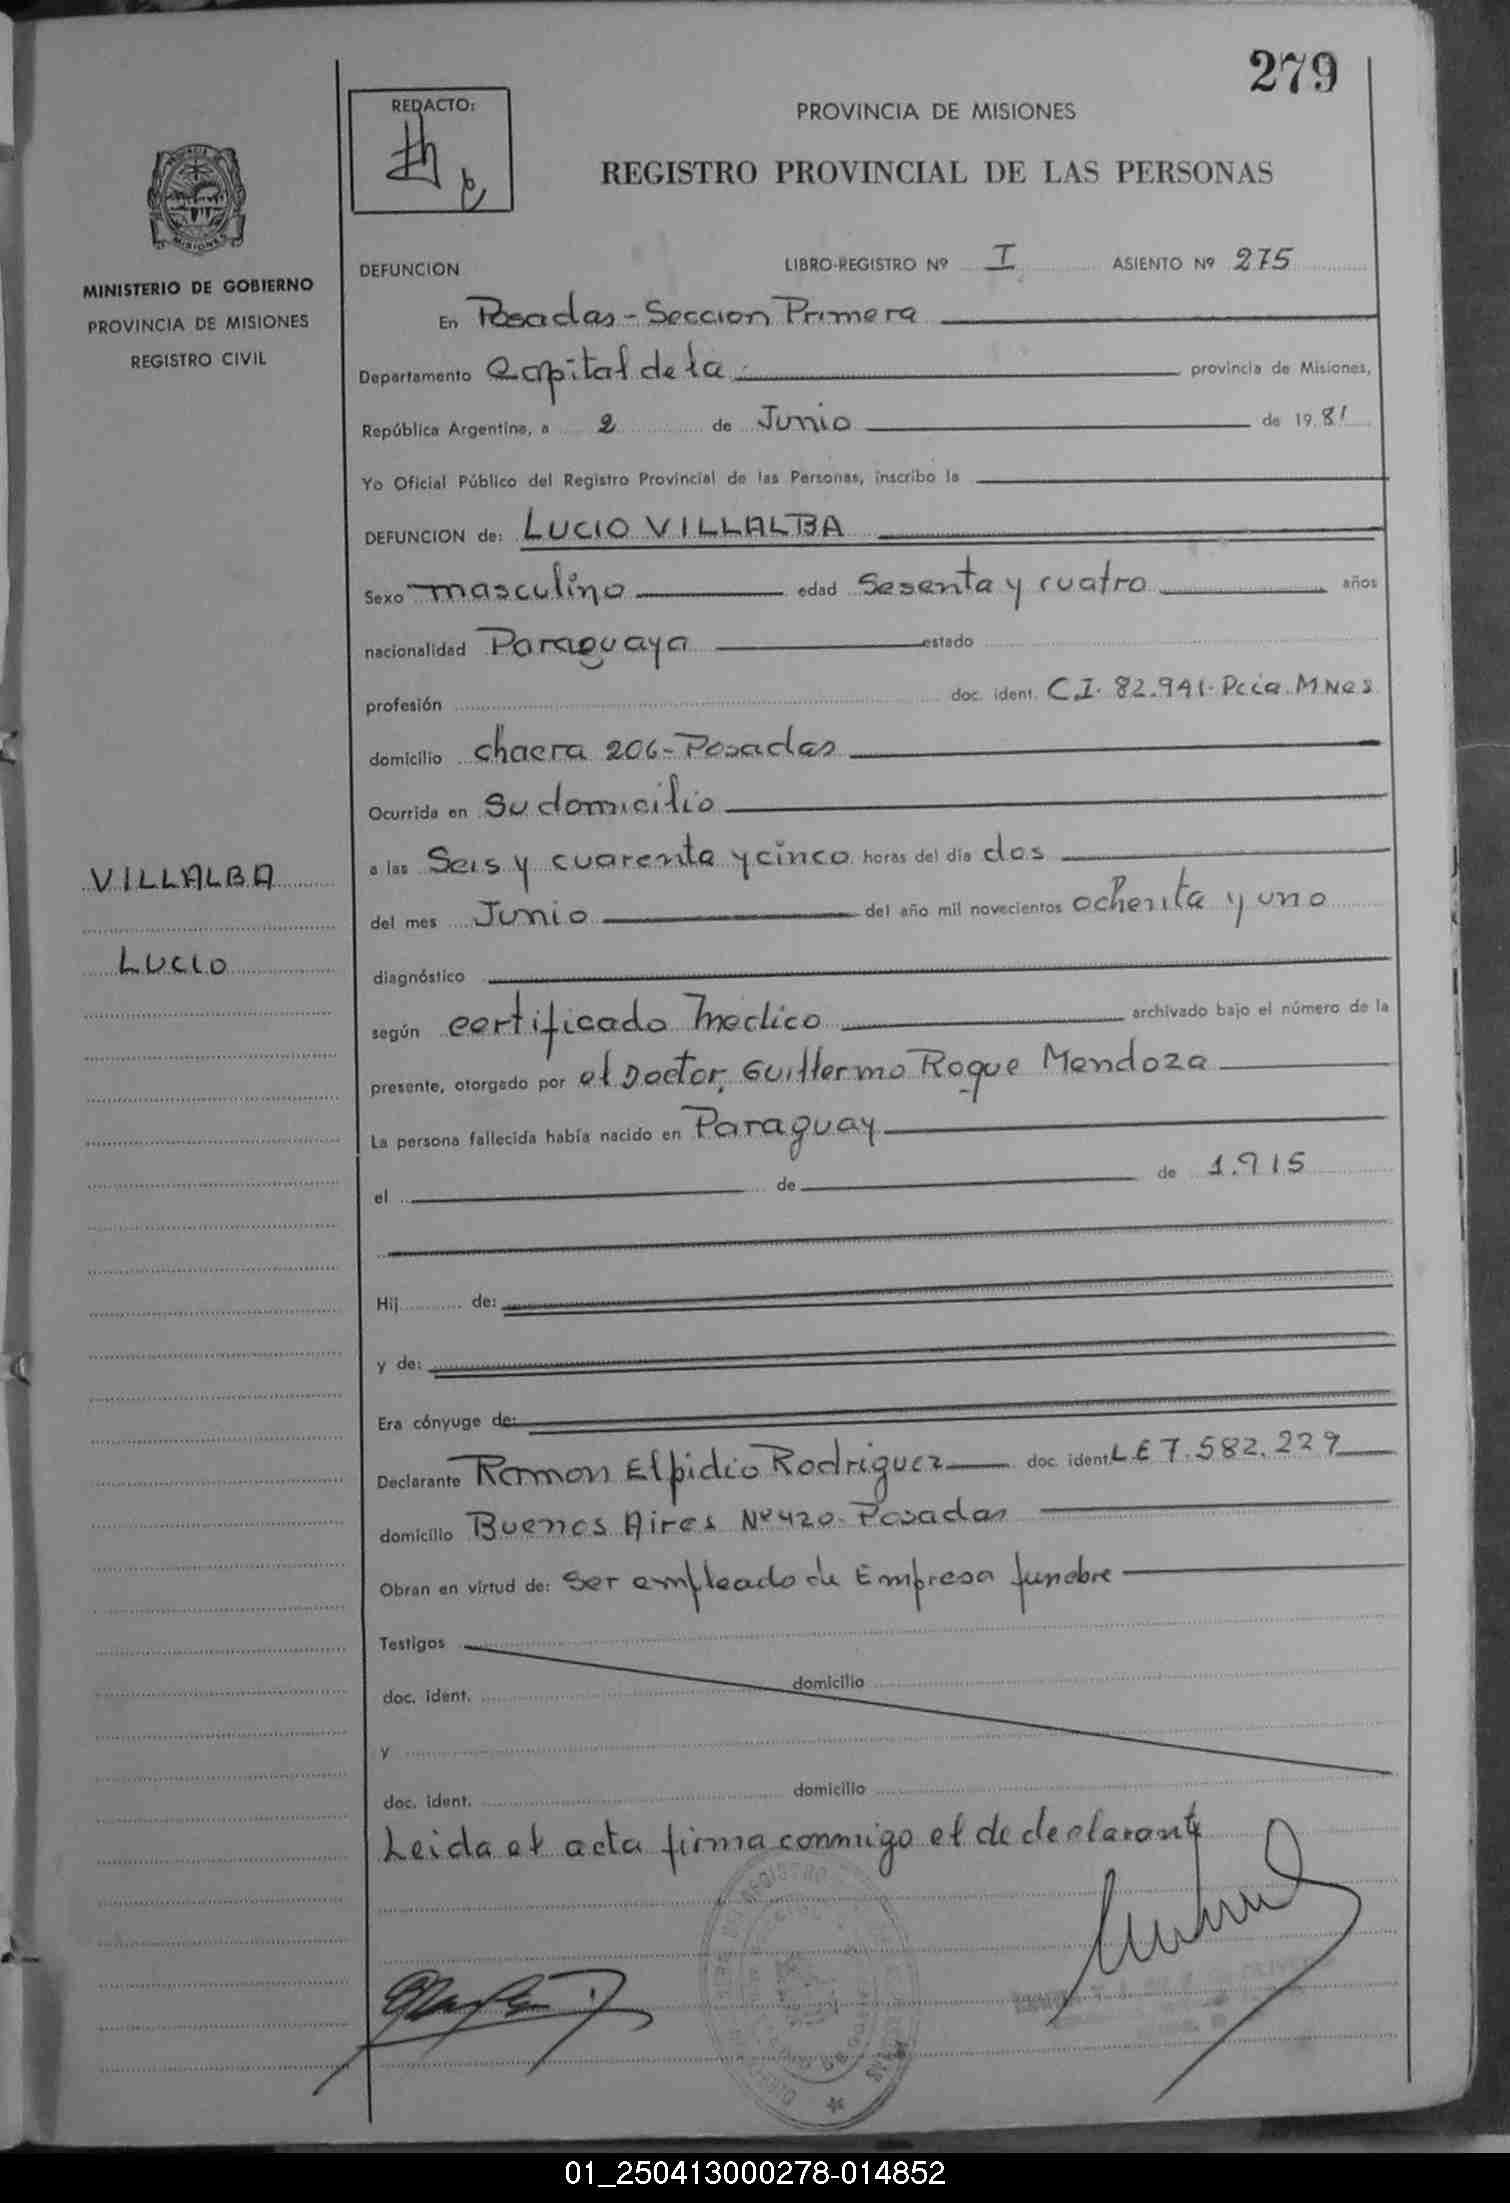 279
REDACTO:
PROVINCIA DE MISIONES
REGISTRO PROVINCIAL DE LAS PERSONAS
MISIONES
MINISTERIO DE GOBIERNO
PROVINCIA DE MISIONES
REGISTRO CIVIL
DEFUNCION LIBRO-REGISTRO Nº I ASIENTO Nº 275
En Posadas - Seccion Primera
Departamento Capital de la provincia de Misiones,
República Argentina, a 2 de Junio de 1981
Yo Oficial Público del Registro Provincial de las Personas, inscribo la
DEFUNCION de: LUCIO VILLALBA
Sexo masculino edad Sesenta y cuatro años
nacionalidad Paraguaya estado
profesión doc. ident. C.I. 82.941. Pcia. Mnes
domicilio chacra 206 - Posadas
Ocurrida en Su domicilio
a las Seis y cuarenta y cinco horas del día dos
del mes Junio del año mil novecientos ochenta y uno
VILLALBA
LUCIO
diagnóstico
según certificado Medico archivado bajo el número de la
presente, otorgado por el Doctor, Guillermo Roque Mendoza
La persona fallecida había nacido en Paraguay
el de de 1.915
Hij de:
y de:
Era cónyuge de:
Declarante Ramon Elpidio Rodriguez doc. ident. L E 7.582.229
domicilio Buenos Aires Nº 420 - Posadas
Obran en virtud de: Ser empleado de Empresa funebre
Testigos
doc. ident. domicilio
y
doc. ident. domicilio
Leida el acta firma conmigo el de declarante
01_250413000278-014852